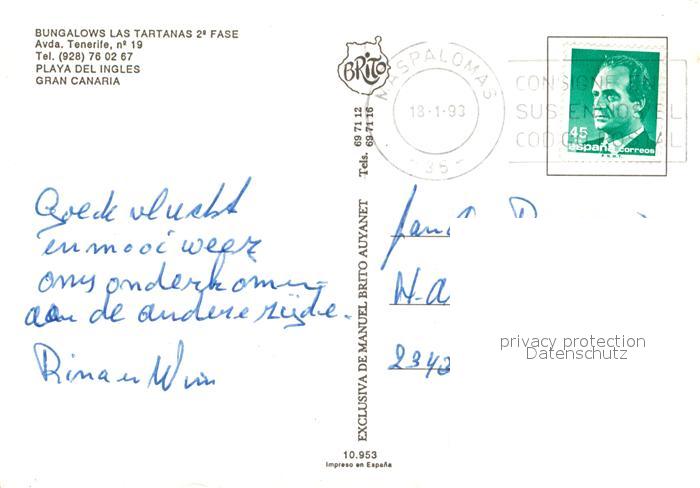 BUNGALOWS LAS TARTANAS 2ª FASE
Avda. Tenerife, nº 19
Tel. (928) 76 02 67
PLAYA DEL INGLES
GRAN CANARIA
BRITO
MASPALOMAS
18-1-93
-35-
CONSIGNE EN
SUS ENVIOS EL
CODIGO POSTAL
45
españa correos
F.N.M.T.
Tels. 69 71 12
69 71 16
EXCLUSIVA DE MANUEL BRITO AUYANET
Goede vlucht
en mooi weer
ons onderkomen
aan de andere zijde.
Rina en Wim
fam.
H-A
2343
privacy protection
Datenschutz
10.953
Impreso en España